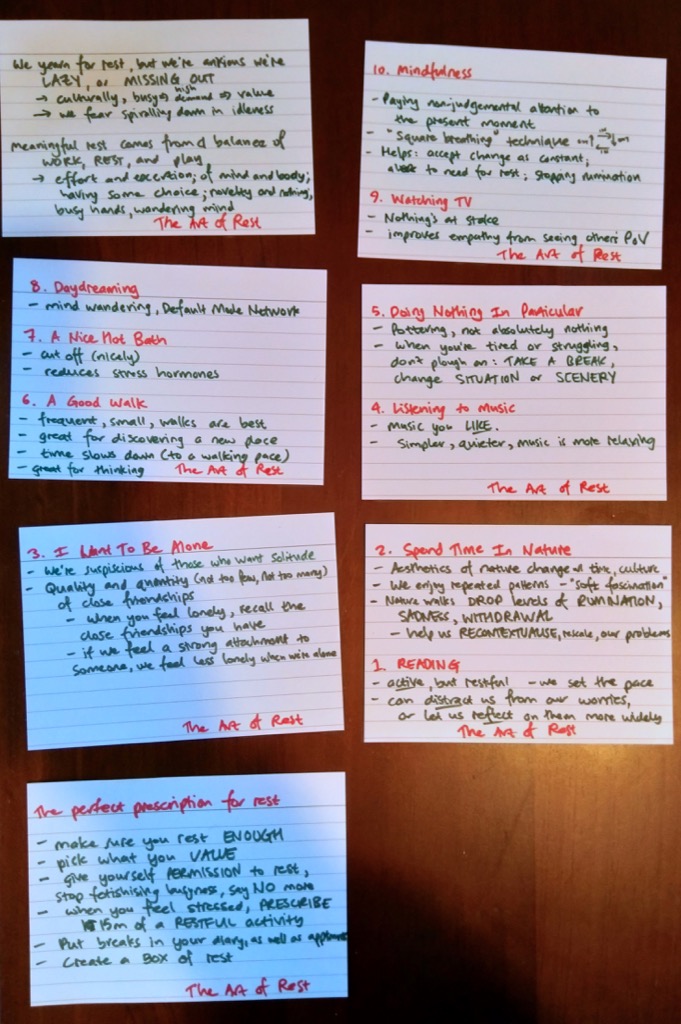 We yearn for rest, but we're anxious we're
LAZY, or MISSING OUT
→ culturally, busy → high demand → value
→ we fear spiralling down in idleness
meaningful rest comes from a balance of
WORK, REST, and play
→ effort and excertion; of mind and body;
having some choice; novelty and nothing;
busy hands, wandering mind
The Art of Rest
10. Mindfulness
- Paying non-judgemental attention to
the present moment
- "Square breathing" technique
- Helps: accept change as constant;
to need for rest; stopping rumination
9. Watching TV
- Nothing's at stake
- improves empathy from seeing others' PoV
The Art of Rest
8. Daydreaming
- mind wandering, Default Mode Network
7. A Nice Hot Bath
- cut off (nicely)
- reduces stress hormones
6. A Good Walk
- frequent, small, walks are best
- great for discovering a new place
- time slows down (to a walking pace)
- great for thinking
The Art of Rest
5. Doing Nothing In Particular
- Pottering, not absolutely nothing
- when you're tired or struggling,
don't plough on: TAKE A BREAK,
change SITUATION or SCENERY
4. Listening to Music
- music you LIKE.
- Simpler, quieter, music is more relaxing
The Art of Rest
3. I Want To Be Alone
- We're suspicious of those who want solitude
- Quality and quantity (not too few, not too many)
of close friendships
- when you feel lonely, recall the
close friendships you have
- if we feel a strong attachment to
someone, we feel less lonely when we're alone
The Art of Rest
2. Spend Time In Nature
- Aesthetics of nature change w time, culture
- We enjoy repeated patterns - "soft fascination"
- Nature walks DROP levels of RUMINATION,
SADNESS, WITHDRAWAL
- help us RECONTEXTUALISE, rescale, our problems
1. READING
- active, but restful - we set the pace
- can distract us from our worries,
or let us reflect on them more widely
The Art of Rest
The perfect prescription for rest
- make sure you rest ENOUGH
- pick what you VALUE
- give yourself PERMISSION to rest,
stop fetishising busyness, say NO more
- when you feel stressed, PRESCRIBE
15m of a RESTFUL activity
- Put breaks in your diary, as well as
- Create a BOX of rest
The Art of Rest